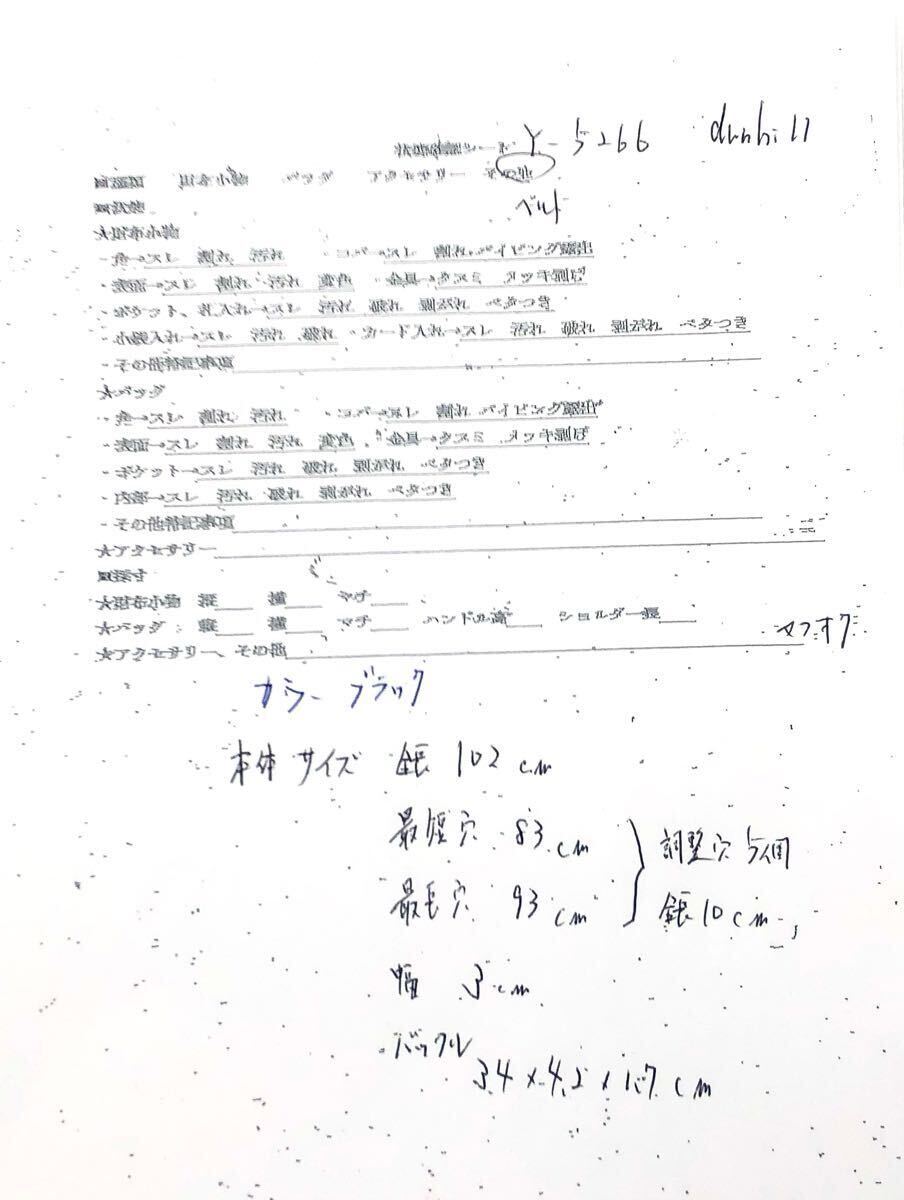 状態確認シート Y-5266 dunhill
財布小物 バッグ アクセサリー その他
ベルト
★財布小物
・角→スレ 割れ 汚れ ・コバ→スレ 割れ パイピング露出
・表面→スレ 割れ 汚れ 変色 ・金具→クスミ メッキ剥げ
・ポケット、札入れ→スレ 汚れ 破れ 剥がれ ベタつき
・小銭入れ→スレ 汚れ 破れ ・カード入れ→スレ 汚れ 破れ 剥がれ ベタつき
・その他特記事項
★バッグ
・角→スレ 割れ 汚れ ・コバ→スレ 割れ パイピング露出
・表面→スレ 割れ 汚れ 変色 ・金具→クスミ メッキ剥げ
・ポケット→スレ 汚れ 破れ 剥がれ ベタつき
・内部→スレ 汚れ 破れ 剥がれ ベタつき
・その他特記事項
★アクセサリー
■採寸
★財布小物 縦 横 マチ
★バッグ : 縦 横 マチ ハンドル高 ショルダー長
★アクセサリー、その他 ヤフオク
カラー ブラック
本体サイズ 全長 102 cm
最短穴 83 cm
調整穴 5個
最長穴 93 cm
全長 10 cm
幅 3 cm
バックル
3.4 × 4.2 × 1.7 cm